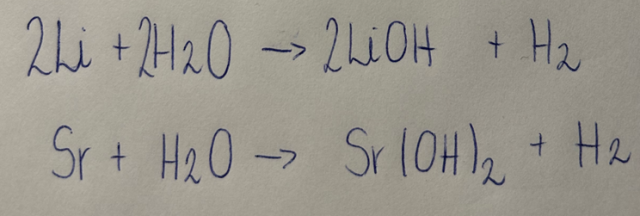 2Li + 2H2O → 2LiOH + H2
Sr + H2O → Sr(OH)2 + H2